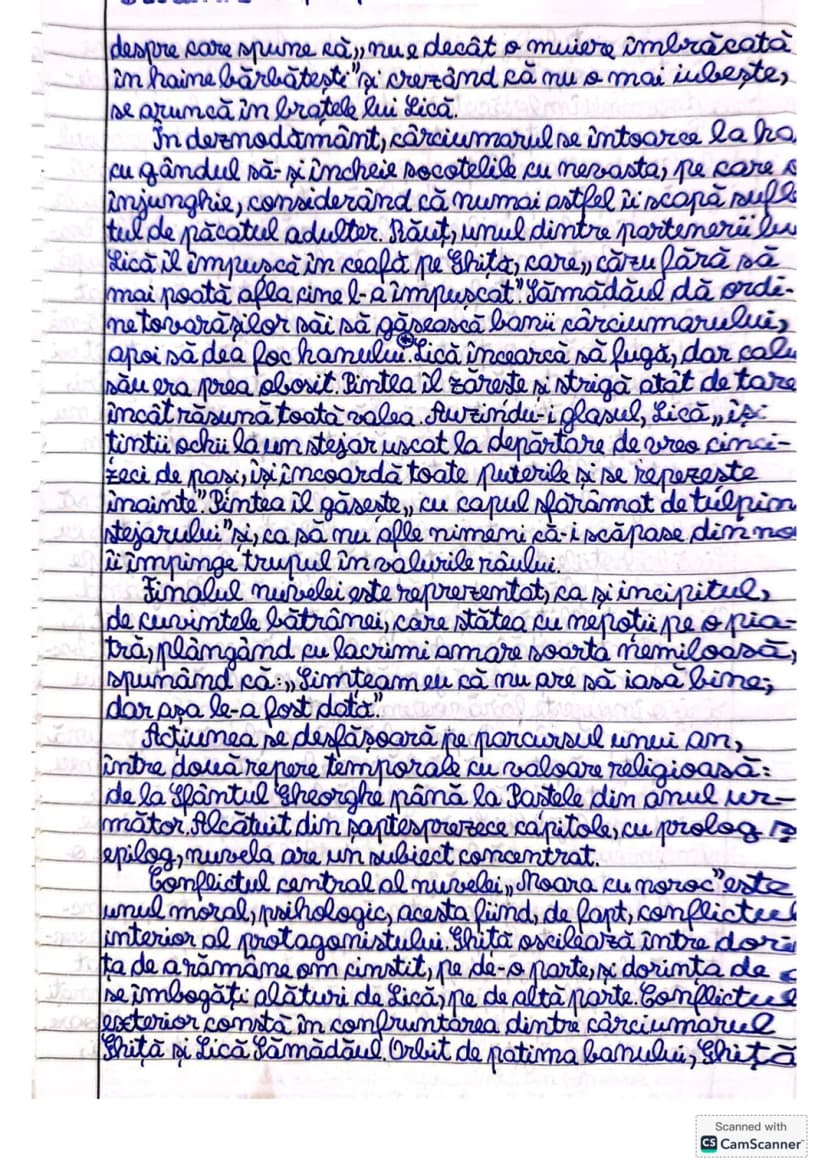 despre care spune că „nu e decât o muiere îmbrăcată
în haine bărbătești” și crezând că nu o mai iubește,
se aruncă în brațele lui Lică.
În deznodământ, cârciumarul se întoarce la ha
cu gândul să-și încheie socotelile cu nevasta, pe care o
înjunghie, considerând că numai astfel îi scapă sufle
tul de păcatul adulter. Răuț, unul dintre partenerii lu
Lică îl împușcă în ceafă pe Ghiță, care „căzu fără să
mai poată afla cine l-a împușcat”. Sămădăul dă ordi-
ne tovarășilor săi să găsească banii cârciumarului,
apoi să dea foc hanului. Lică încearcă să fugă, dar calu
său era prea obosit. Pintea îl zărește și strigă atât de tare
încât răsună toată valea. Auzindu-i glasul, Lică „își
ținti ochii la un stejar uscat la depărtare de vreo cinci-
zeci de pași, își încoardă toate puterile și se repezește
înainte”. Pintea îl găsește „cu capul sfărâmat de tulpin
stejarului” și, ca să nu afle nimeni că-i scăpase din nou
îi împinge trupul în valurile râului.
Finalul nuvelei este reprezentat, ca și incipitul,
de cuvintele bătrânei, care stătea cu nepoții pe o pia-
tră, plângând cu lacrimi amare soarta nemiloasă,
spunând că: „Simțeam eu că nu are să iasă bine;
dar așa le-a fost dată.”
Acțiunea se desfășoară pe parcursul unui an,
între două repere temporale cu valoare religioasă:
de la Sfântul Gheorghe până la Paștele din anul ur-
mător. Alcătuit din șaptesprezece capitole, cu prolog și
epilog, nuvela are un subiect concentrat.
Conflictul central al nuvelei „Moara cu noroc” este
unul moral, psihologic, acesta fiind, de fapt, conflictul
interior al protagonistului. Ghiță oscilează între dorin
ța de a rămâne om cinstit, pe de-o parte, și dorința de a
se îmbogăți alături de Lică, pe de altă parte. Conflictul
exterior constă în confruntarea dintre cârciumarul
Ghiță și Lică Sămădăul. Orbit de patima banului, Ghiță
Scanned with
CS CamScanner